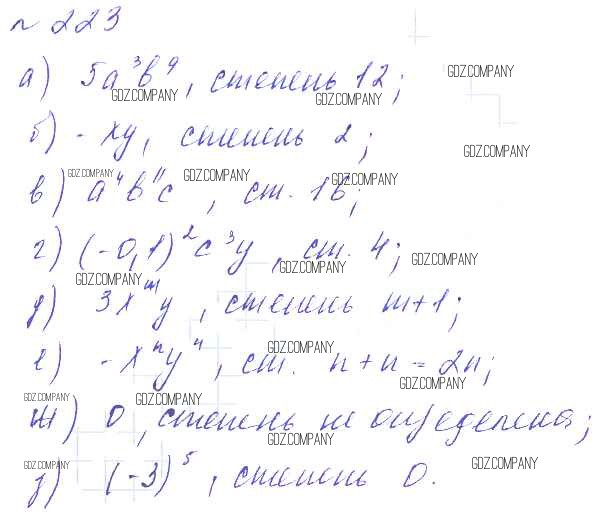 № 223
а) 5a³b⁹, степень 12;
GDZ.COMPANY GDZ.COMPANY GDZ.COMPANY
б) -xy, степень 2;
GDZ.COMPANY
в) a⁴b¹¹c, ст. 16;
GDZ.COMPANY GDZ.COMPANY GDZ.COMPANY
г) (-0,1)²c³y, ст. 4;
GDZ.COMPANY GDZ.COMPANY GDZ.COMPANY
д) 3xᵐy, степень m+1;
е) -xⁿyⁿ, ст. n+n=2n;
GDZ.COMPANY GDZ.COMPANY
GDZ.COMPANY GDZ.COMPANY
ж) 0, степень не определена;
GDZ.COMPANY
з) (-3)⁵, степень 0.
GDZ.COMPANY GDZ.COMPANY